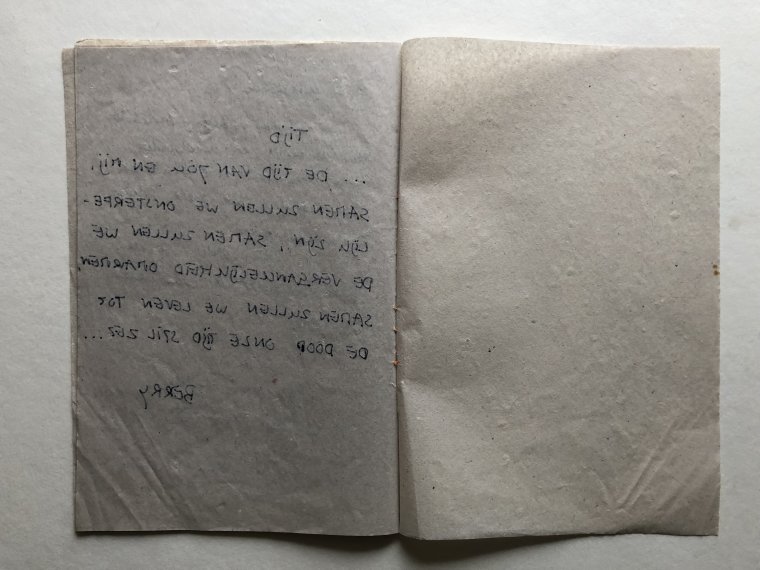 Tijd
... DE TIJD VAN JOU EN MIJ.
SAMEN ZULLEN WE ONSTERFE-
LIJK ZIJN, SAMEN ZULLEN WE
DE VERGANKELIJKHEID OMARMEN,
SAMEN ZULLEN WE LEVEN TOT
DE DOOD ONZE TIJD STIL ZET...
BERRY